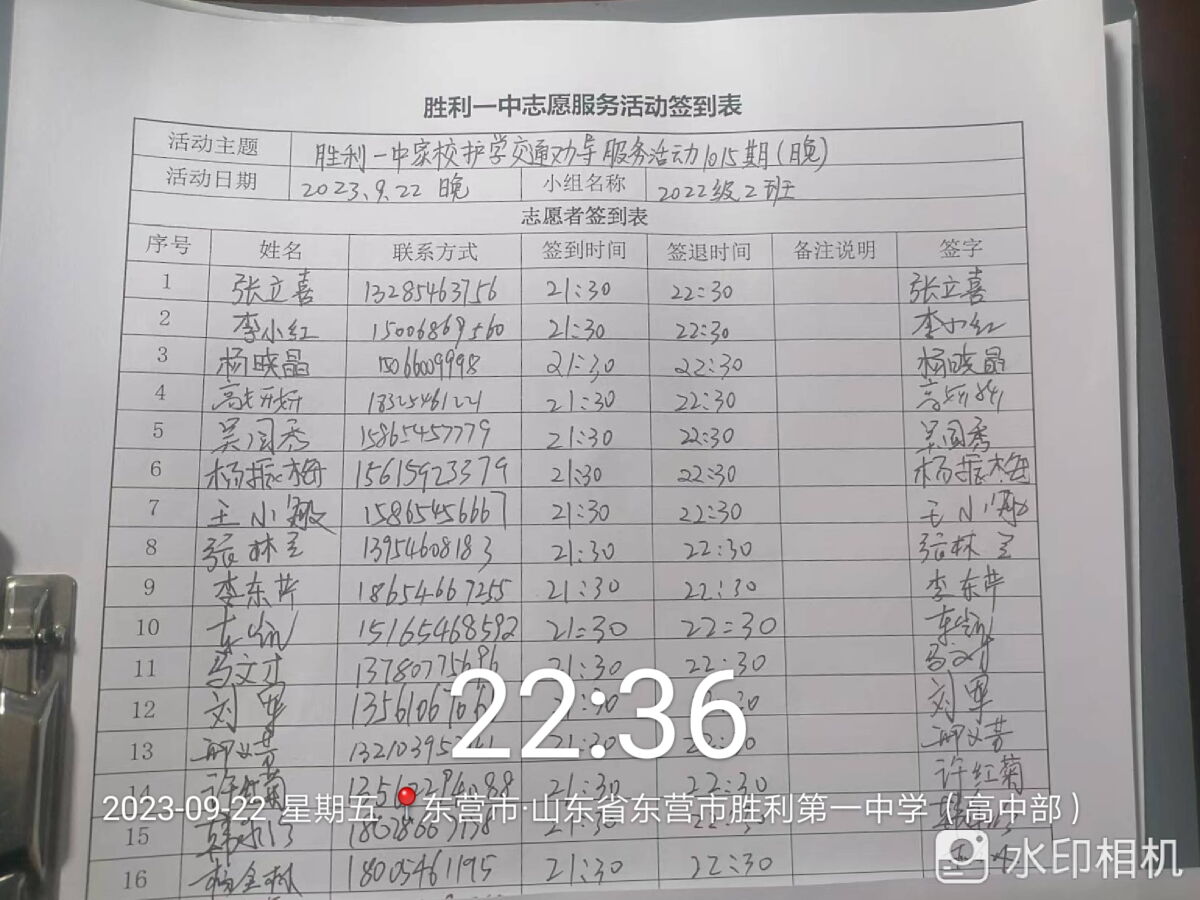 胜利一中志愿服务活动签到表
活动主题 胜利一中家校护学交通劝导服务活动1015期(晚)
活动日期 2023.9.22 晚 小组名称 2022级2班
志愿者签到表
序号 姓名 联系方式 签到时间 签退时间 备注说明 签字
1 张立喜 13285463756 21:30 22:30 张立喜
2 李小红 15006869560 21:30 22:30 李小红
3 杨晓晶 15066009998 21:30 22:30 杨晓晶
4 高妍妍 18325461221 21:30 22:30 高妍妍
5 吴国秀 15865457779 21:30 22:30 吴国秀
6 杨振梅 15615923379 21:30 22:30 杨振梅
7 王小敏 15865456667 21:30 22:30 王小敏
8 张林 13954608183 21:30 22:30 张林
9 李东芹 18654667255 21:30 22:30 李东芹
10 15165468592 21:30 22:30
11 马文才 13780775686 21:30 22:30 马文才
12 刘军 21:30 :30 刘军
22:36
13 21:30 22:30
14 许红菊 21:30 22:30 许红菊
2023-09-22 星期五 东营市·山东省东营市胜利第一中学(高中部)
15 21:30 22:30
16 18005461195 21:30 22:30
水印相机